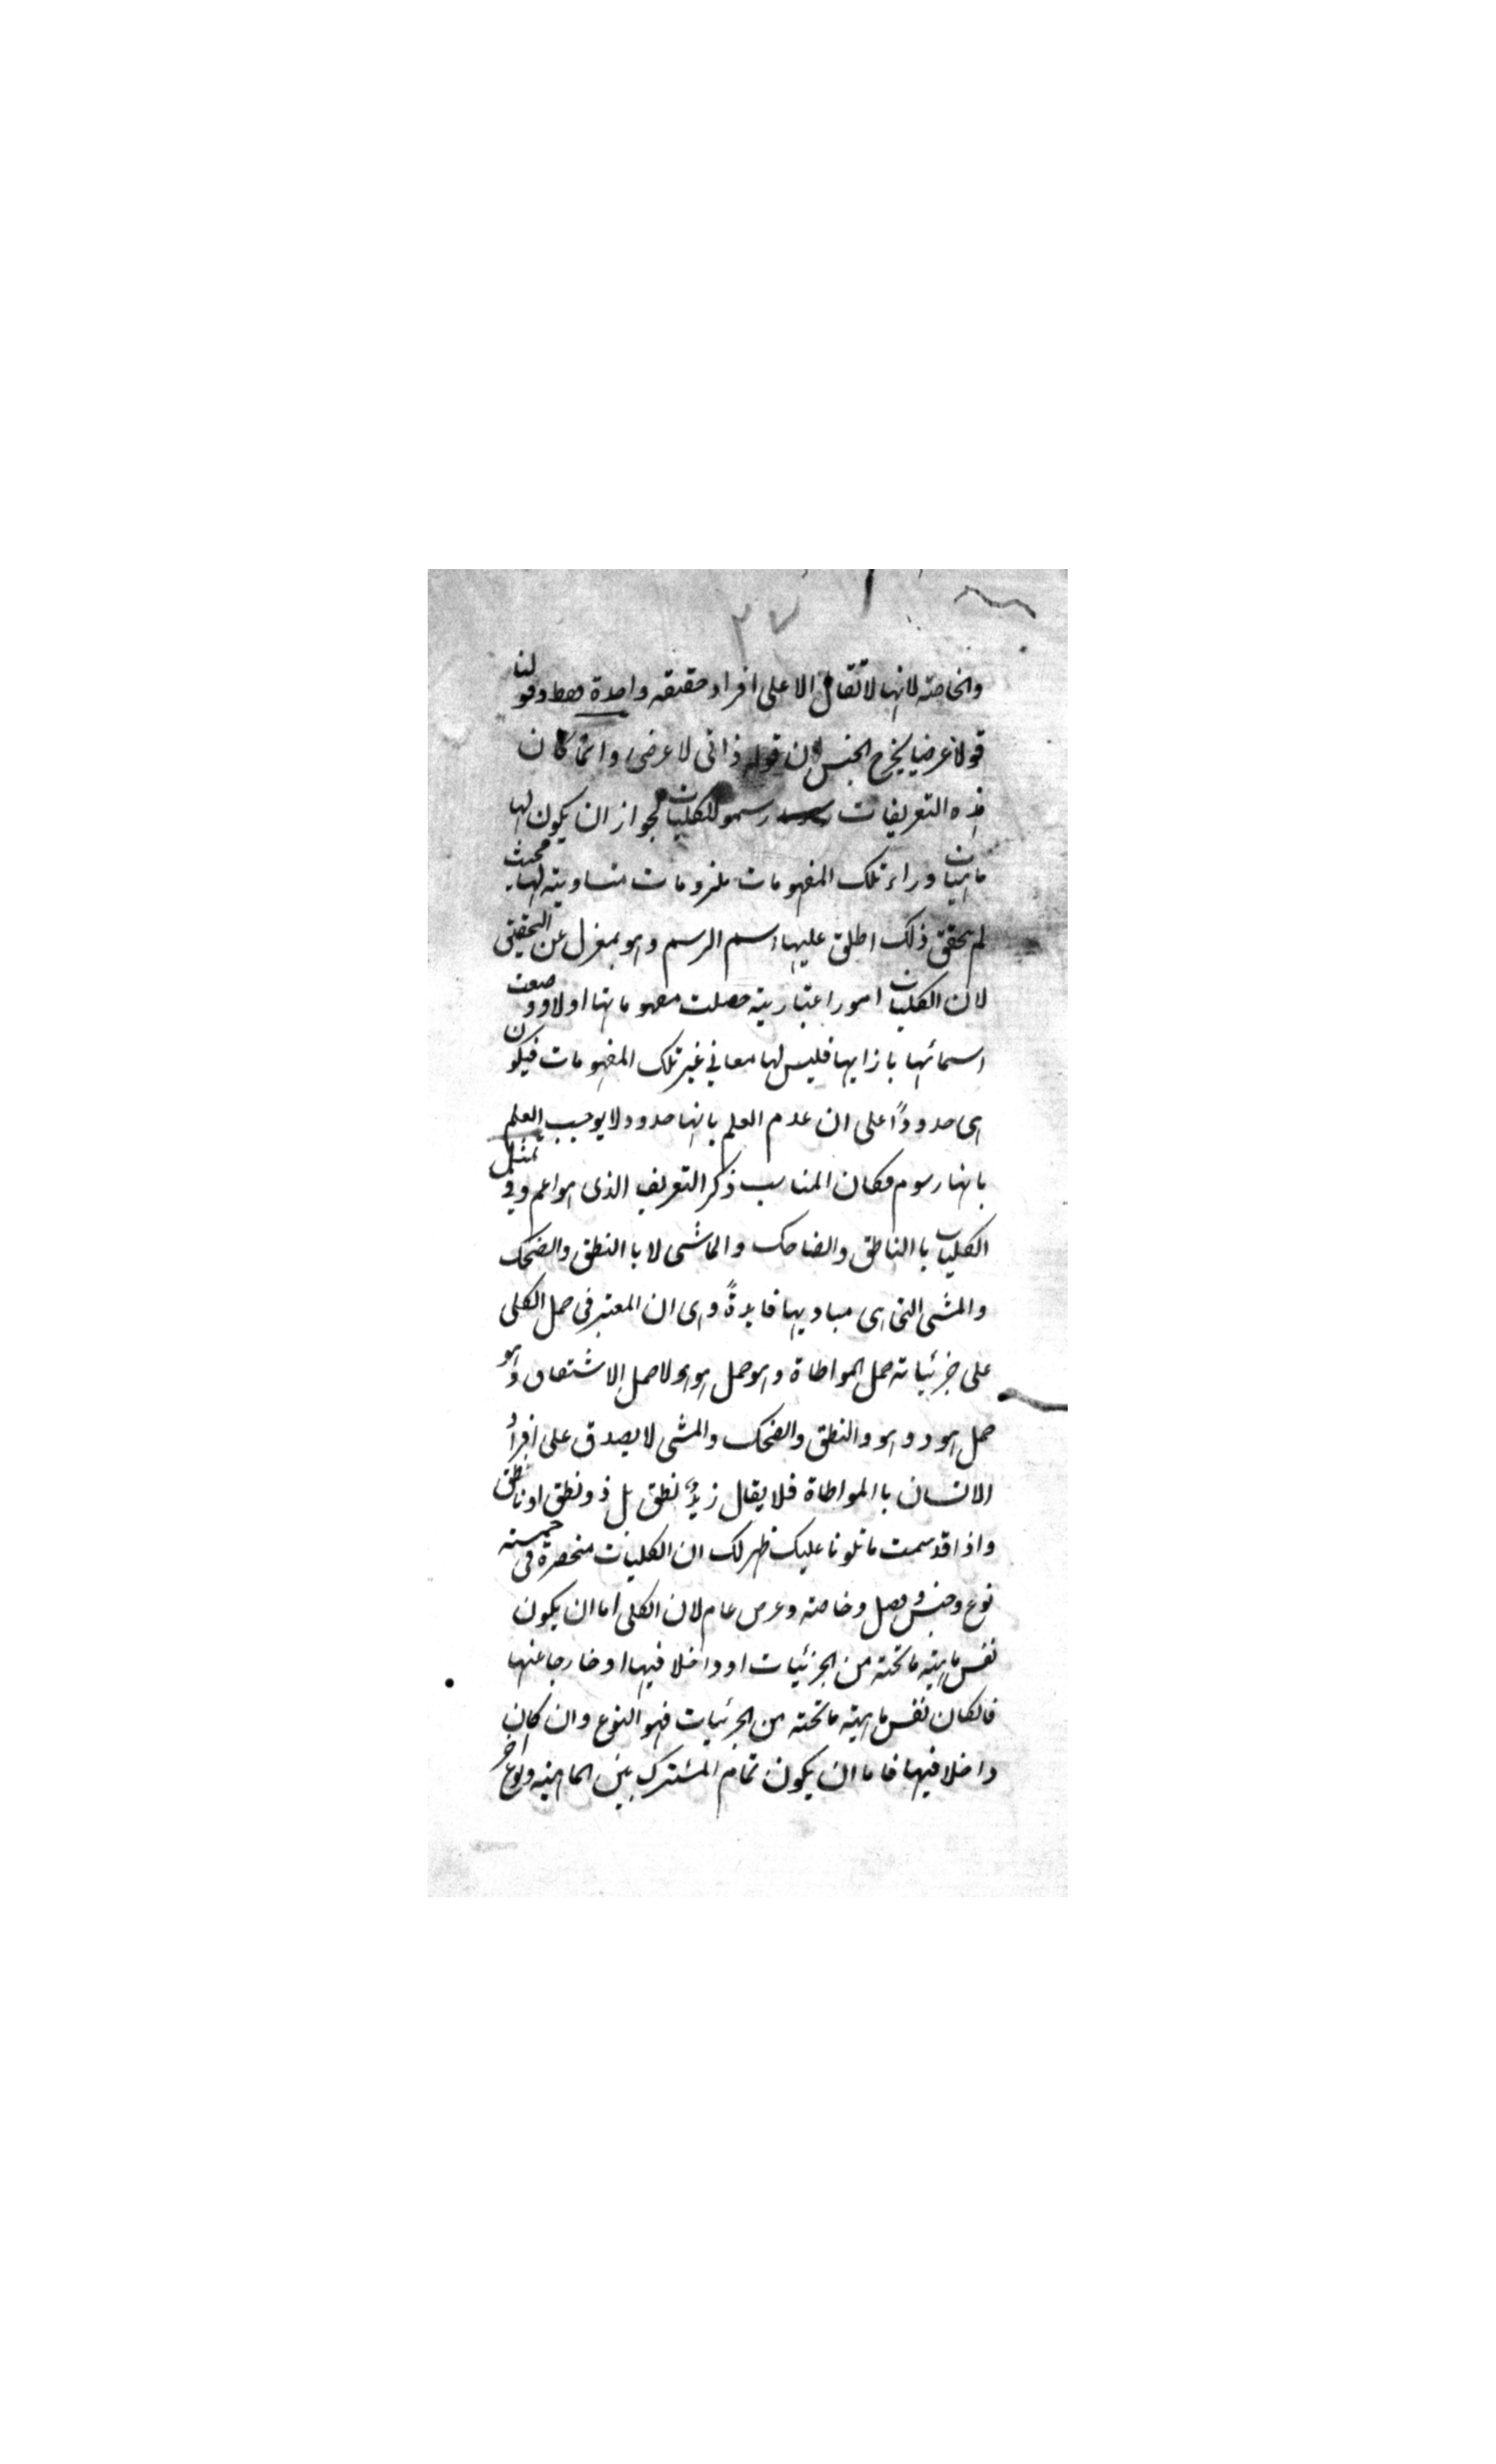 ٣٧
والخاصة لانها لا تقال الا على افراد حقيقة واحدة فقط وقولنا
قولا عرضيا يخرج الجنس لان قوله ذاتى لا عرضى وانما كان
هذه التعريفات رسموا للكليات لجواز ان يكون لها
ماهيات وراء تلك المفهومات ملزومات متساوية لها فحيث
لم يحقق ذلك اطلق عليها اسم الرسم وهو بمعزل عن التحقيق
لان الكليات امور اعتبارية حصلت مفهوماتها اولا ووضعت
اسمائها بازايها فليس لها معاني غير تلك المفهومات فيكون
هى حدودًا على ان عدم العلم بانها حدود لا يوجب العلم
بانها رسوم فكان المناسب ذكر التعريف الذى هو اعم وفي تمثيل
الكليات با الناطق والضاحك والماشى لا با النطق والضحك
والمشى التى هى مباديها فايدةً وهى ان المعتبر فى حمل الكلى
على جزئياته حمل المواطاة وهو حمل هو هو لا حمل الاشتقاق وهو
حمل هو ذو هو والنطق والضحك والمشى لا يصدق على افراد
الانسان با المواطاة فلا يقال زيدٌ نطق بل ذو نطق او ناطق
واذا قد سمعت ما تلونا عليك ظهر لك ان الكليات منحصرة فى خمسة
نوع وجنس وفصل وخاصة وعرض عام لان الكلى اما ان يكون
نفس ماهية ما تحته من الجزئيات او داخلا فيها او خارجا عنها
فالكان نفس ماهية ما تحته من الجزئيات فهو النوع وان كان
داخلا فيها فاما ان يكون تمام المشترك بين الماهية ونوع اخر